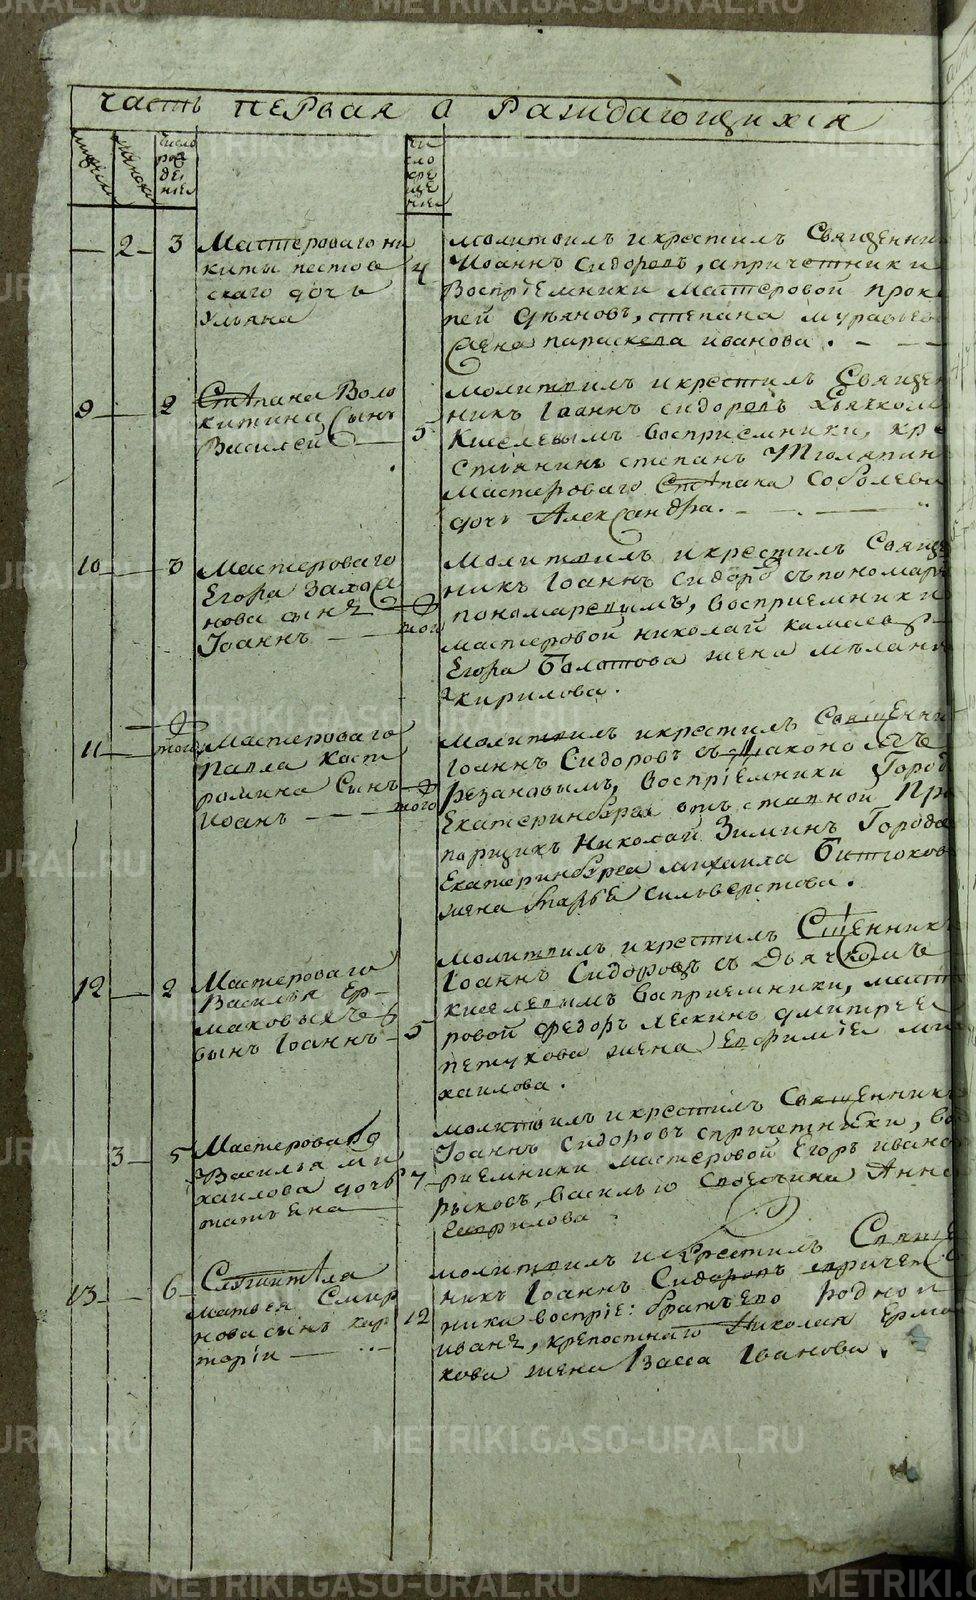 часть первая о раждающихся
мужеск женска
число рождения
число крещения
2 3 Мастероваго ни
киты пестов
скаго дочь
Ульяна
4
молитвилъ и крестилъ Священни
Иоаннъ Сидоровъ, а причетники
Восприемники мастеровой проко
пей Деяновъ, степана муравьева
жена параскева иванова.
9 2 Степана Воло
китина Сынъ
Василей
5
молитвилъ и крестилъ Священ
никъ Iоаннъ сидоровъ Дьячкомъ
Киселевымъ восприемники, кре
стьянинъ степанъ
мастероваго Степана Соболева
дочь Александра.
10 3 Мастероваго
Егора
нова сынъ
Iоаннъ
того
молитвилъ и крестилъ Свяще
никъ Iоаннъ Сидоро съ пономаре
пономаревымъ, восприемники
мастеровой николай
Егора Болотова жена мелань
кирилова.
11 того Мастероваго
павла Кост
ромина Сынъ
Иоанъ
того
молитвилъ и крестилъ Священни
Iоаннъ Сидоровъ съ Диакономъ
Резановымъ, Восприемники Город
Екатеринбурга отъ ставной Пра
порщикъ Николай Зиминъ Города
Екатеринбурга михаила Битюкова
жена марфа сильверстова.
12 2 Мастероваго
Василья Ер
маковыхъ
сынъ Iоаннъ
5
молитвилъ и крестилъ Сщенникъ
Iоаннъ Сидоровъ съ Дьячкомъ
киселевымъ восприемники, масте
ровой федоръ лескинъ дмитрее
петухова жена Евфимiе ми
хаилова.
3 5 Мастероваго
Василья ми
хаилова дочь
татьена
7
молитвилъ и крестилъ Священникъ
Iоаннъ Сидоровъ с причетники, вос
приемники мастеровой Егоръ ивано
рыковъ, василью Анна
13 6
матвея Смир
нова сынъ
12
молитвилъ и крестилъ Священ
никъ Iоаннъ Сидоровъ причет
ника воспрiе: братъ ево родной
иванъ, крепостнаго Николая Ерма
кова жена Васса Iванова.
METRIKI.GASO-URAL.RU